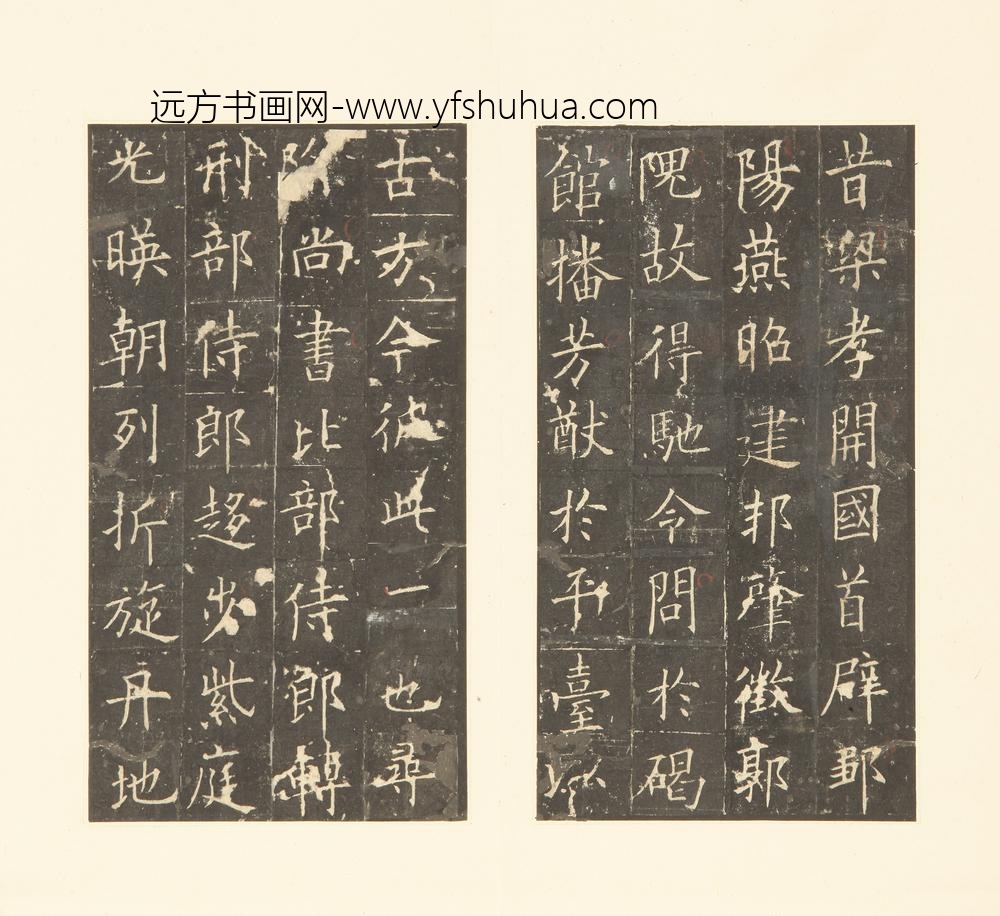 远方书画网-www.yfshuhua.com
昔梁孝開國首辟鄒
陽燕昭建邦肇徵郭
隗故得馳令問於碣
館播芳猷於平臺以
古方今彼此一也尋
尚書比部侍郎轉
刑部侍郎趍步紫庭
光暎朝列折旋丹地